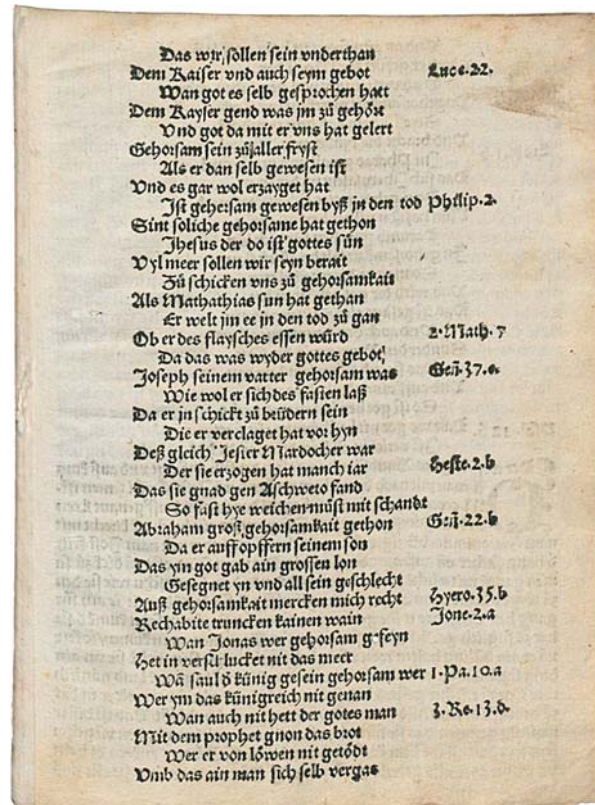 Das wir sollen sein vnderthan
Dem Kaiser vnd auch seym gebot Luce.22.
Wan got es selb gesprochen hatt
Dem Kayser gend was jm zů gehört
Vnd got da mit er vns hat gelert
Gehorsam sein zů aller fryst
Als er dan selb gewesen ist
Vnd es gar wol erzayget hat
Ist gehorsam gewesen byß jn den tod Philip.2.
Sint soliche gehorsame hat gethon
Jhesus der do ist gottes sůn
Vyl meer sollen wir seyn berait
Zů schicken vns zů gehorsamkait
Als Mathathias sun hat gethan
Er welt jm ee jn den tod zů gan
Ob er des flaysches essen würd 2.Math.7
Da das was wyder gottes gebot
Joseph seinem vatter gehorsam was Geñ.37.e.
Wie wol er sich des fasten laß
Da er jn schickt zů brüdern sein
Die er verclaget hat vor hyn
Deß gleich Jester Mardocher war
Der sie erzogen hat manch iar Heste.2.b
Das sie gnad gen Aschwero fand
So fast hye weichen můst mit schandt
Abraham groß gehorsamkait gethon Geñ.22.b
Da er auff opffern seinem son
Das ym got gab ain grossen lon
Gesegnet yn vnd all sein geschlecht
Auß gehorsamkait mercken mich recht Hyero.35.b
Rechabite truncken kainen wain Jone.2.a
Wan Jonas wer gehorsam geseyn
Het in verslucket nit das meer
Wā saul d künig gesein gehorsam wer 1.Pa.10.a
Wer ym das künigreich nit genan
Wan auch nit hett der gotes man 3.Re.13.d.
Mit dem prophet gnon das brot
Wer er von löwen nit getödt
Vmb das ain man sich selb vergas